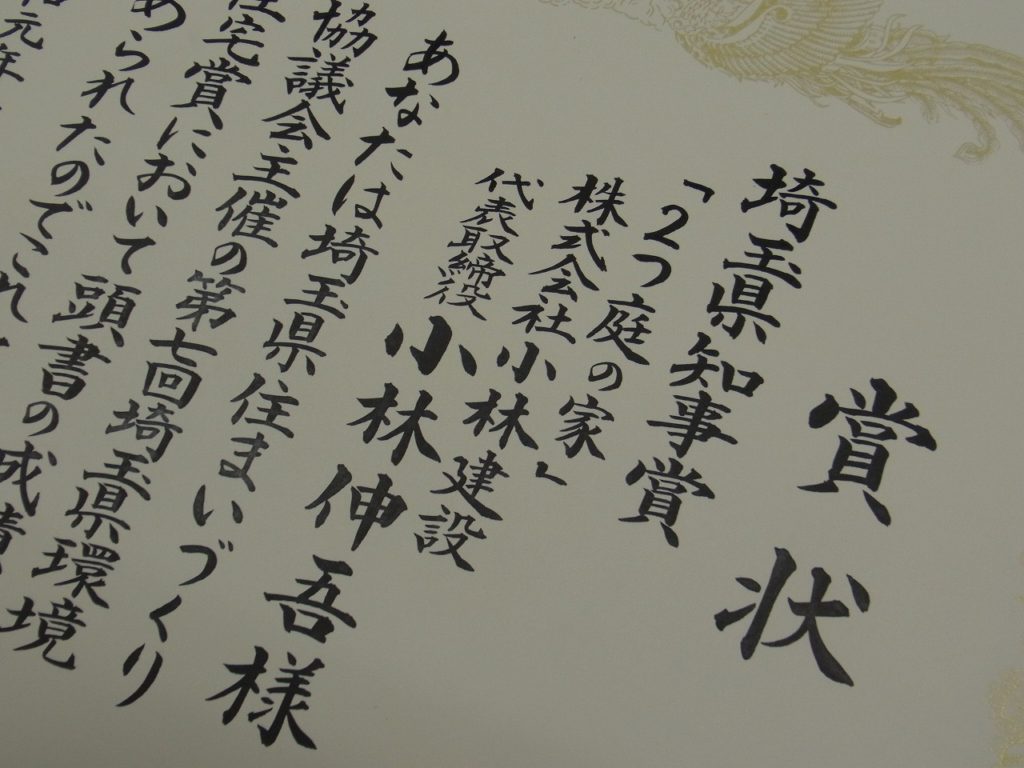 賞状
埼玉県知事賞
「2つ庭の家」
株式会社小林建設
代表取締役小林伸吾様
あなたは埼玉県住まいづくり
協議会主催の第七回埼玉県環境
住宅賞において頭書の成績
められたのでこれ
元年